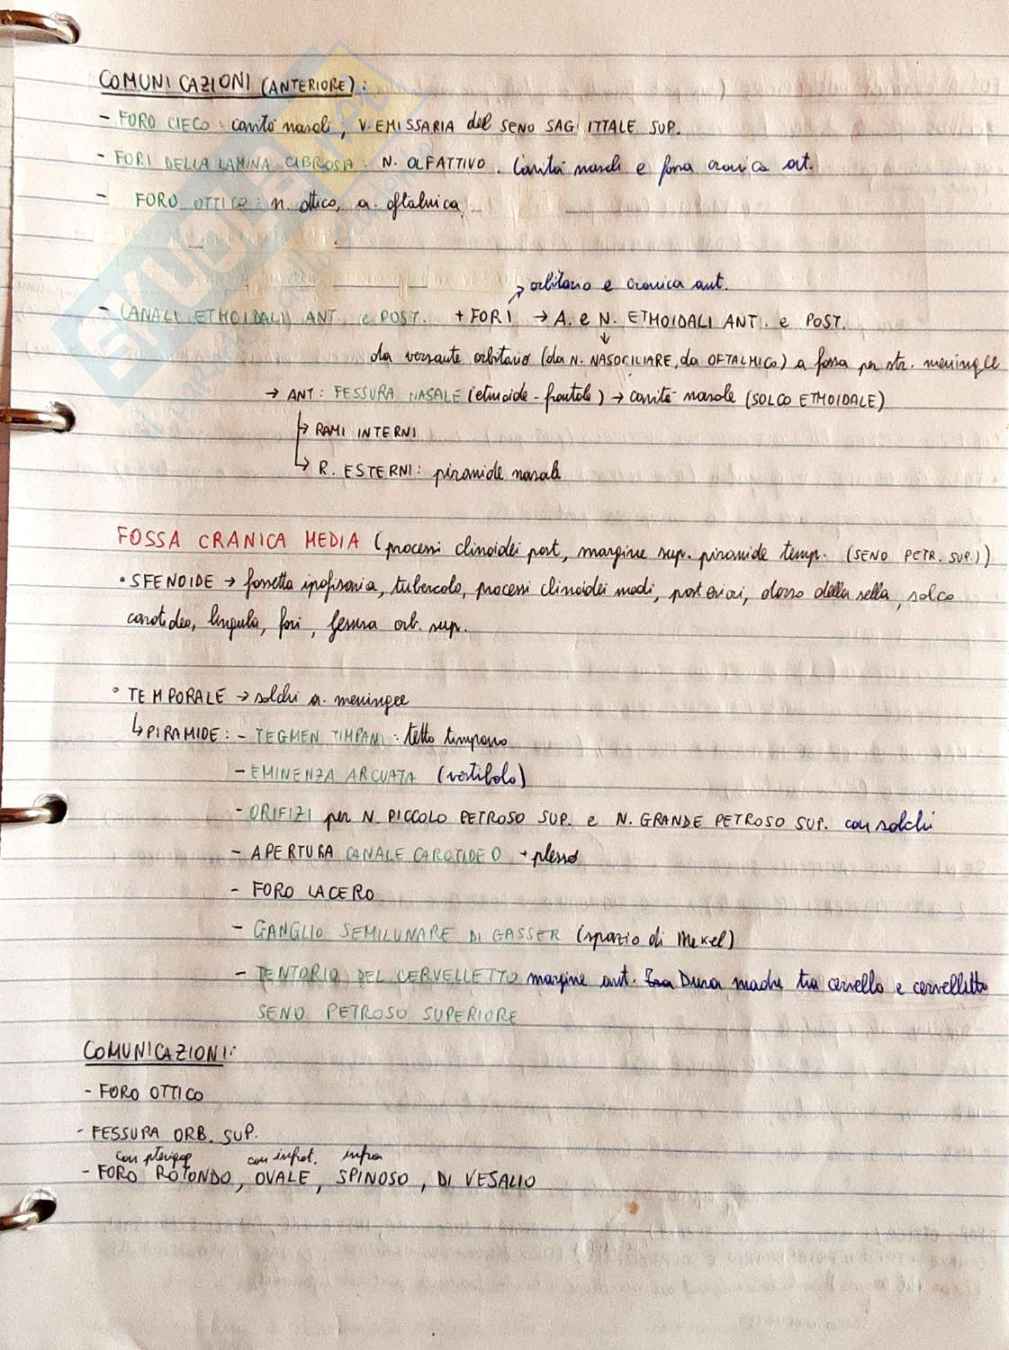 COMUNICAZIONI (ANTERIORE):
- FORO CIECO: cavità nasali, V. EMISSARIA del SENO SAGITTALE SUP.
- FORI DELLA LAMINA CRIBROSA: N. OLFATTIVO. Cavità nasali e fossa cranica ant.
- FORO OTTICO: n. ottico, a. oftalmica
orbitario e cranica ant.
- CANALI ETMOIDALI ANT. e POST. + FORI → A. e N. ETMOIDALI ANT. e POST.
da versante orbitario (da N. NASOCILIARE, da OFTALMICO) a fossa per str. meningee
→ ANT: FESSURA NASALE (etmoide-frontale) → cavità nasale (SOLCO ETMOIDALE)
→ RAMI INTERNI
→ R. ESTERNI: piramide nasale
FOSSA CRANICA MEDIA (processi clinoidei post, margine sup. piramide temp. (SENO PETR. SUP.))
• SFENOIDE → fossetta ipofisaria, tubercolo, processi clinoidei medi, posteriori, dorso della sella, solco
carotideo, lingula, fori, fessura orb. sup.
• TEMPORALE → solchi a. meningee
↳ PIRAMIDE: - TEGMEN TIMPANI: tetto timpano
- EMINENZA ARCUATA (vestibolo)
- ORIFIZI per N. PICCOLO PETROSO SUP. e N. GRANDE PETROSO SUP. con solchi
- APERTURA CANALE CAROTIDEO + plesso
- FORO LACERO
- GANGLIO SEMILUNARE DI GASSER (spazio di Mekel)
- TENTORIO DEL CERVELLETTO margine ant. Dura madre tra cervello e cervelletto
SENO PETROSO SUPERIORE
COMUNICAZIONI:
- FORO OTTICO
- FESSURA ORB. SUP.
con pterigop con infrat. infra
- FORO ROTONDO, OVALE, SPINOSO, DI VESALIO